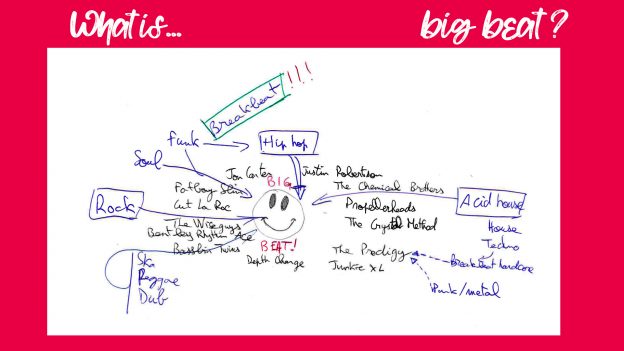 What is... big beat?
Breakbeat !!!
Funk
Hip hop
Soul
Jon Carter
BIG
Justin Robertson
Fatboy Slim
The Chemical Brothers
Rock
Cut La Roc
Propellerheads
Acid house
The Wiseguys
The Crystal Method
House
Bentley Rhythm Ace
Techno
Bassbin Twins
BEAT!
The Prodigy
Breakbeat hardcore
Depth Charge
Junkie XL
Ska
Reggae
Dub
Punk/metal